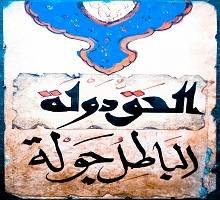 الحق دولة
الباطل جولة